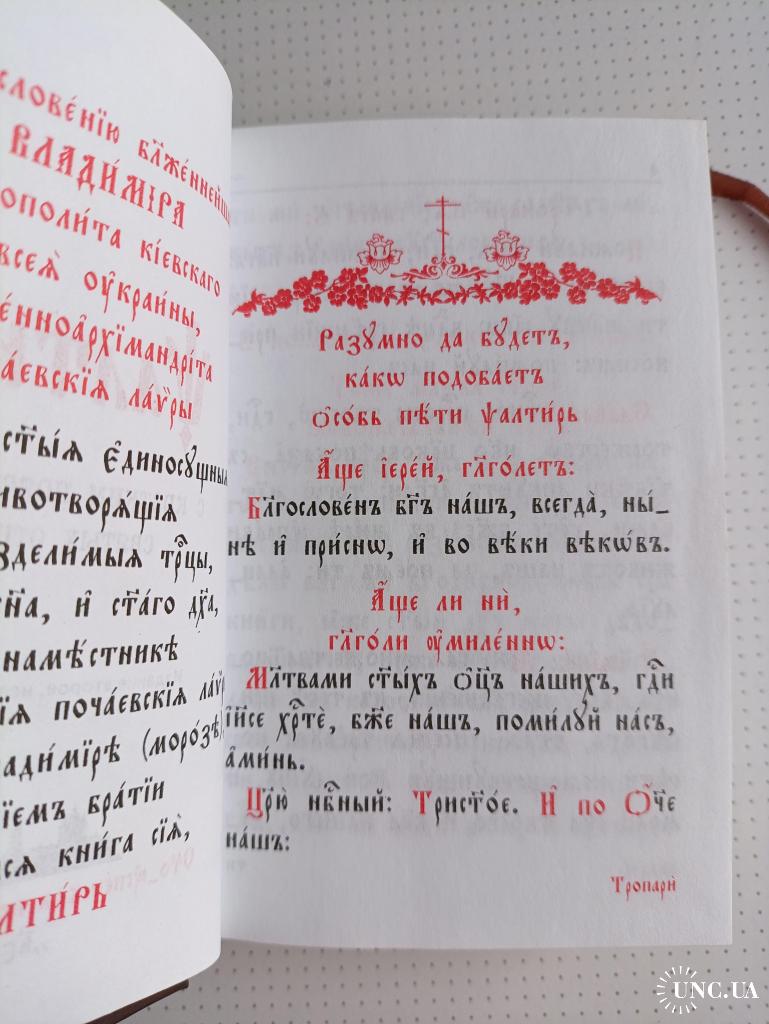 слове́нїю бл҃же́ннейш
ВЛАДИ́МІРА
ополи́та кі́евскаго
всеѧ̀ ᲂу҆краи́ны,
е́нноа҆рхїмандрі́та
а́евскїѧ ла́ѵры
ст҃ы́ѧ є҆диносꙋ́щныѧ
ивотворѧ́щїѧ
здели́мыѧ трⷪ҇цы,
сн҃а, и҆ ст҃а́го дх҃а,
намѣ́стникѣ
їѧ поча́евскїѧ ла́ѵр
ади́мїрѣ (моро́зѣ)
їемъ бра́тїи
сѧ кни́га сїѧ̀,
АЛТИ́РЬ
Разꙋ́мно да бꙋ́детъ,
ка́кѡ подоба́етъ
ѻ҆со́бь пѣ́ти ѱалти́рь
А҆́ще і҆ере́й, гл҃го́летъ:
Бл҃гослове́нъ бг҃ъ на́шъ, всегда̀, ны́_
нѣ и҆ при́снѡ, и҆ во вѣ́ки вѣкѡ́въ.
А҆́ще ли нѝ,
гл҃го́ли ᲂу҆миле́ннѡ:
Мл҃твами ст҃ы́хъ ѻ҆ц҃ъ на́шихъ, гдⷭ҇и
і҆и҃се хрⷭ҇те́, бж҃е на́шъ, поми́лꙋй на́съ,
а҆ми́нь.
Цр҃ю̀ нбⷭ҇ный: Трист҃о́е. И҆ по Ѻ҆́ч҃е
на́шъ:
Тропарѝ
UNC.UA